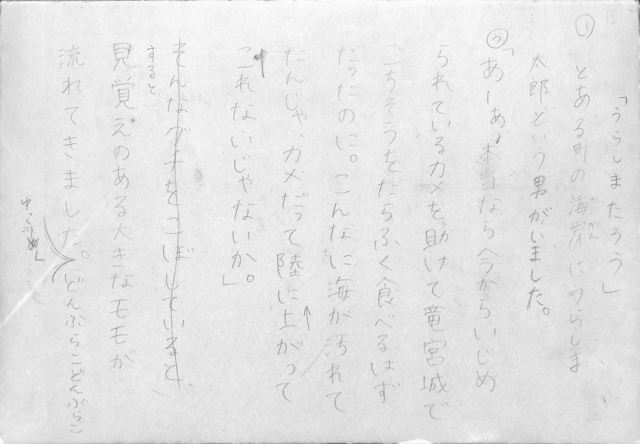 「うらしまたろう」
① とある町の海岸にうらしま
かいがん
太郎という男がいました。
② 「あーあ、本当なら今からいじめ
られているカメを助けて竜宮城で
ごちそうをたらふく食べるはず
だったのに。こんなに海が汚れて
たんじゃ、カメだって陸に上がって
これないじゃないか。」
そんなグチをこぼしていると
すると
見覚えのある大きなモモが
流れてきました。どんぶらこどんぶらこ